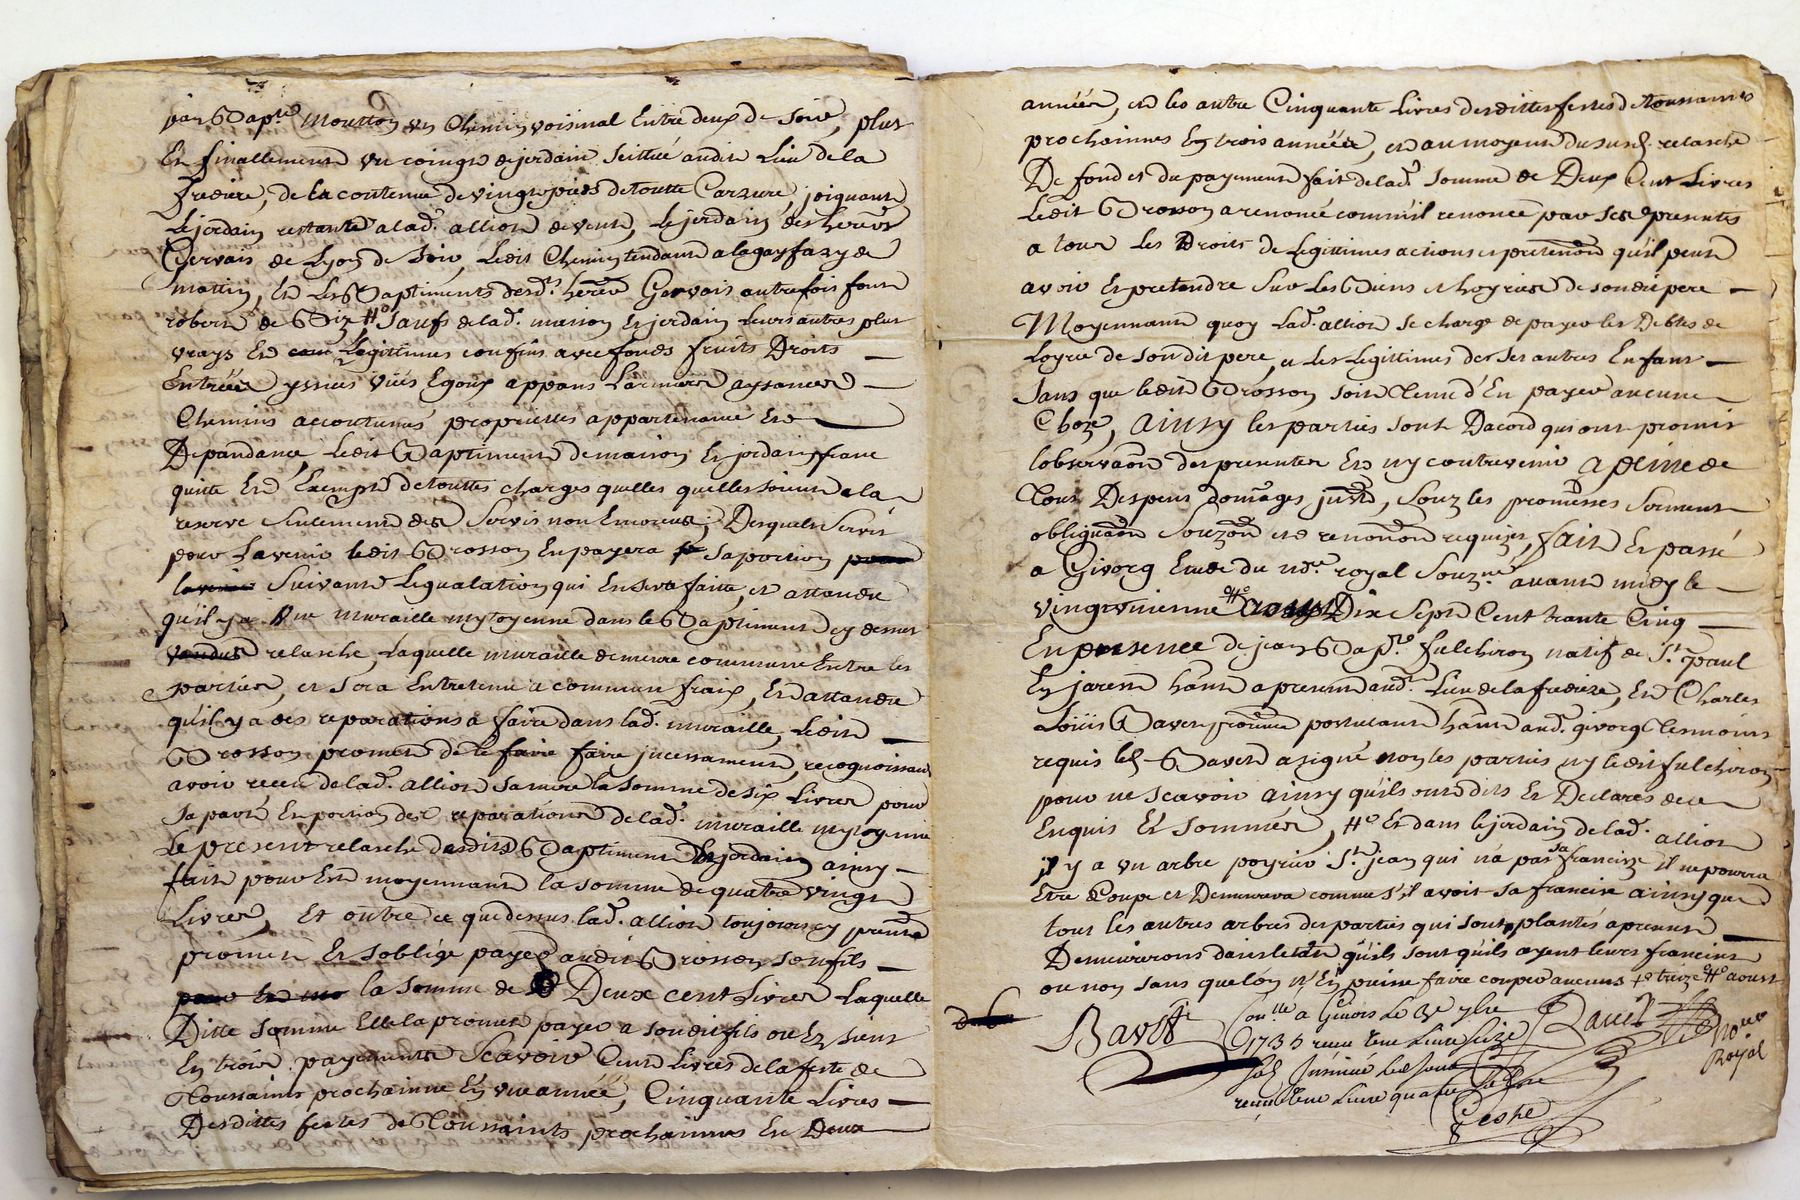 par Bapte Moutton un Chemin voisinal Entre deux de soir, plus
Et finallement un coingt de jerdain Seittué audit Lieu de la
fredière, de la contenue de vingt pieds de toutte Carzure, joignant
Le jerdain restante a lad. allion de vent, Le jerdain des heres
Gervais de Lyon de Soir, Ledit Chemin tendant a la gayfary de
mattin, Et Les Baptiments desds. heres Gervais autrefois font
robert de Bize Sauf de lad. maison Et jerdain Leurs autres plus
vrays Et Legittimes confins avec fonds fruits Droits
Entrées yssües vües Egoux appans Larmiers aysances
Chemins accoutumés proprietés appartenance Et
Depandance, Ledit Baptiment de maison Et jerdain franc
quitte Et Exempt de touttes charges quelles quelles soient a la
reserve Seulement des Servis non Enoncés, Desquels Servis
pour Lavenir ledit Brosson En payera sa portion pour
lavenir Suivant Lequalation qui En sera faitte, et attendu
qu'il y a Une muraille mytoyenne dans le Baptiment cy dessus
vendus relasché, Laquelle muraille demeure commune Entre les
parties, et Sera Entretenue a commun fraix, Et attandu
qu'il y a des reparations a faire dans lad. muraille, Ledit
Brosson promet de le faire faire incessament, recognoissant
avoir receu de lad. allion Sa mere la Somme de Six Livres pour
Sa part Et portion des reparations de lad. muraille mytoyenne
Le present relasche desdits Baptiment Et jerdain ainsy
fait pour Et moyennant la Somme de quatre vingt
Livres, Et outre ce que dessus lad. allion toujours cy presente
promet Et s'oblige payer audit Brosson Son fils
pour Et la Somme de Deux cent Livres Laquelle
Ditte Somme Elle la promet payer a Son dit fils ou Es Siens
En trois payements Scavoir Cent Livres de la feste de
Toussaints prochainne En une année, Cinquante Livres
Desdittes festes de Toussaints prochainnes En Deux
années, et les autre Cinquante Livres desdittes festes de toussaints
prochainnes En trois années, et au moyent du susd. relasche
De fond et du payement fait de lad. Somme de Deux Cent Livres
Ledit Brosson a renoncé comme il renonce par Ses presentes
a tous Les Droits de Legittimes actions et pretention qu'il peut
avoir Et pretendre Sur Les Biens et hoyries de Son dit pere
Moyennant quoy Lad. allion Se charge de payer les Debtes de
Loyrie de Son dit pere, et Les Legittimes de Ses autres Enfant
Sans que ledit Brosson Soit Tenu d'En payer aucune
Choze, Ainsy les parties Sont Dacord qui ont promis
lobservaon des presentes Et ny contrevenir A peine de
Tous Despens domages, Souz les promesses Serment
obligaon Souzon et renonon requizes, fait Et passé
a Givorg Etude du nore. royal Souzné. avant midy le
vingt unieme aoust Dix Sept Cent trante Cinq
En presence de jean Bapte. fulchiron natif de St. paul
En jarest hant a present aud. Lieu de la fredieze, Et Charles
Loüis Bavet hant aud. givorg Tesmoins
requis led. Bavet a signé non les parties ny ledit fulchiron
pour ne scavoir ainsy qu'ils ont dits Et Declarés de ce
Enquis Et Sommés, Et dans le jerdain de lad. allion
il y a un arbre poyrier St. jean qui n'a pas sa francize il ne pourra
Etre Coupé et Demeurera comme s'il avoit Sa francise ainsy que
tout les autres arbres des parties qui sont plantés a present
Demeureront dans letat qu'ils sont qu'ils ayent leurs francises
ou non sans que lon n'En puisse faire couper aucuns treize aoust
Bavet
Conlle a Givors Le 3e 7bre
1735 receu
Bavet
Nore
Royal